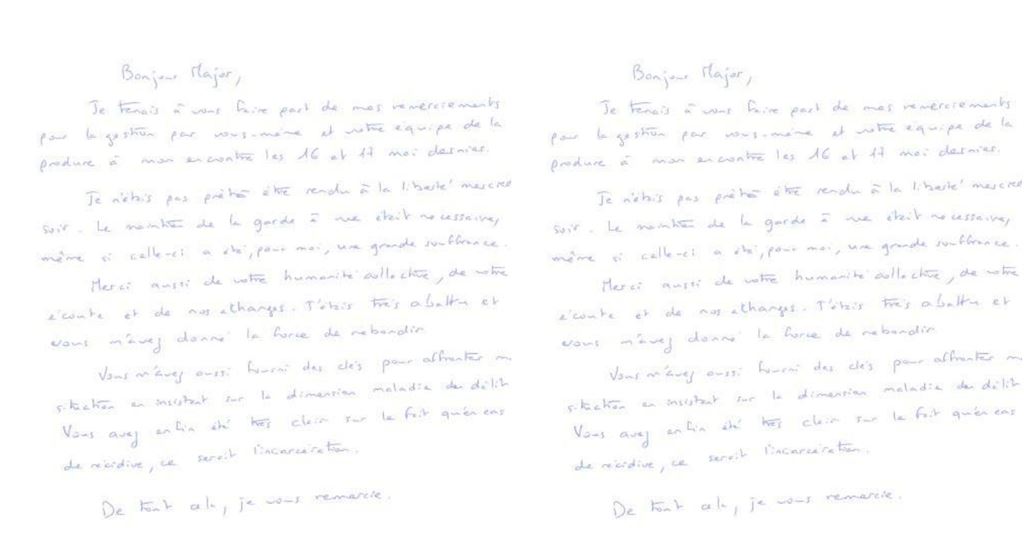 Bonjour Major,
Je tenais à vous faire part de mes remerciements
pour la gestion par vous-même et votre équipe de la
produre à mon encontre les 16 et 17 mai derniers.
Je n'étais pas prêt à être rendu à la liberté mercred
soir. Le maintien de la garde à vue était nécessaire,
même si celle-ci a été, pour moi, une grande souffrance.
Merci aussi de votre humanité collective, de votre
écoute et de nos échanges. J'étais très abattu et
vous m'avez donné la force de rebondir
Vous m'avez aussi fourni des clés pour affronter m
situation en insistant sur la dimension maladie du délit
Vous avez enfin été très clair sur le fait qu'en cas
de récidive, ce serait l'incarcération.
De tout cela, je vous remercie.
Bonjour Major,
Je tenais à vous faire part de mes remerciements
pour la gestion par vous-même et votre équipe de la
produre à mon encontre les 16 et 17 mai derniers.
Je n'étais pas prêt à être rendu à la liberté mercred
soir. Le maintien de la garde à vue était nécessaire,
même si celle-ci a été, pour moi, une grande souffrance.
Merci aussi de votre humanité collective, de votre
écoute et de nos échanges. J'étais très abattu et
vous m'avez donné la force de rebondir
Vous m'avez aussi fourni des clés pour affronter m
situation en insistant sur la dimension maladie du délit
Vous avez enfin été très clair sur le fait qu'en cas
de récidive, ce serait l'incarcération.
De tout cela, je vous remercie.